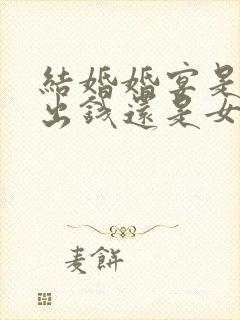 結婚婚宴是
出錢還是女
麦餅